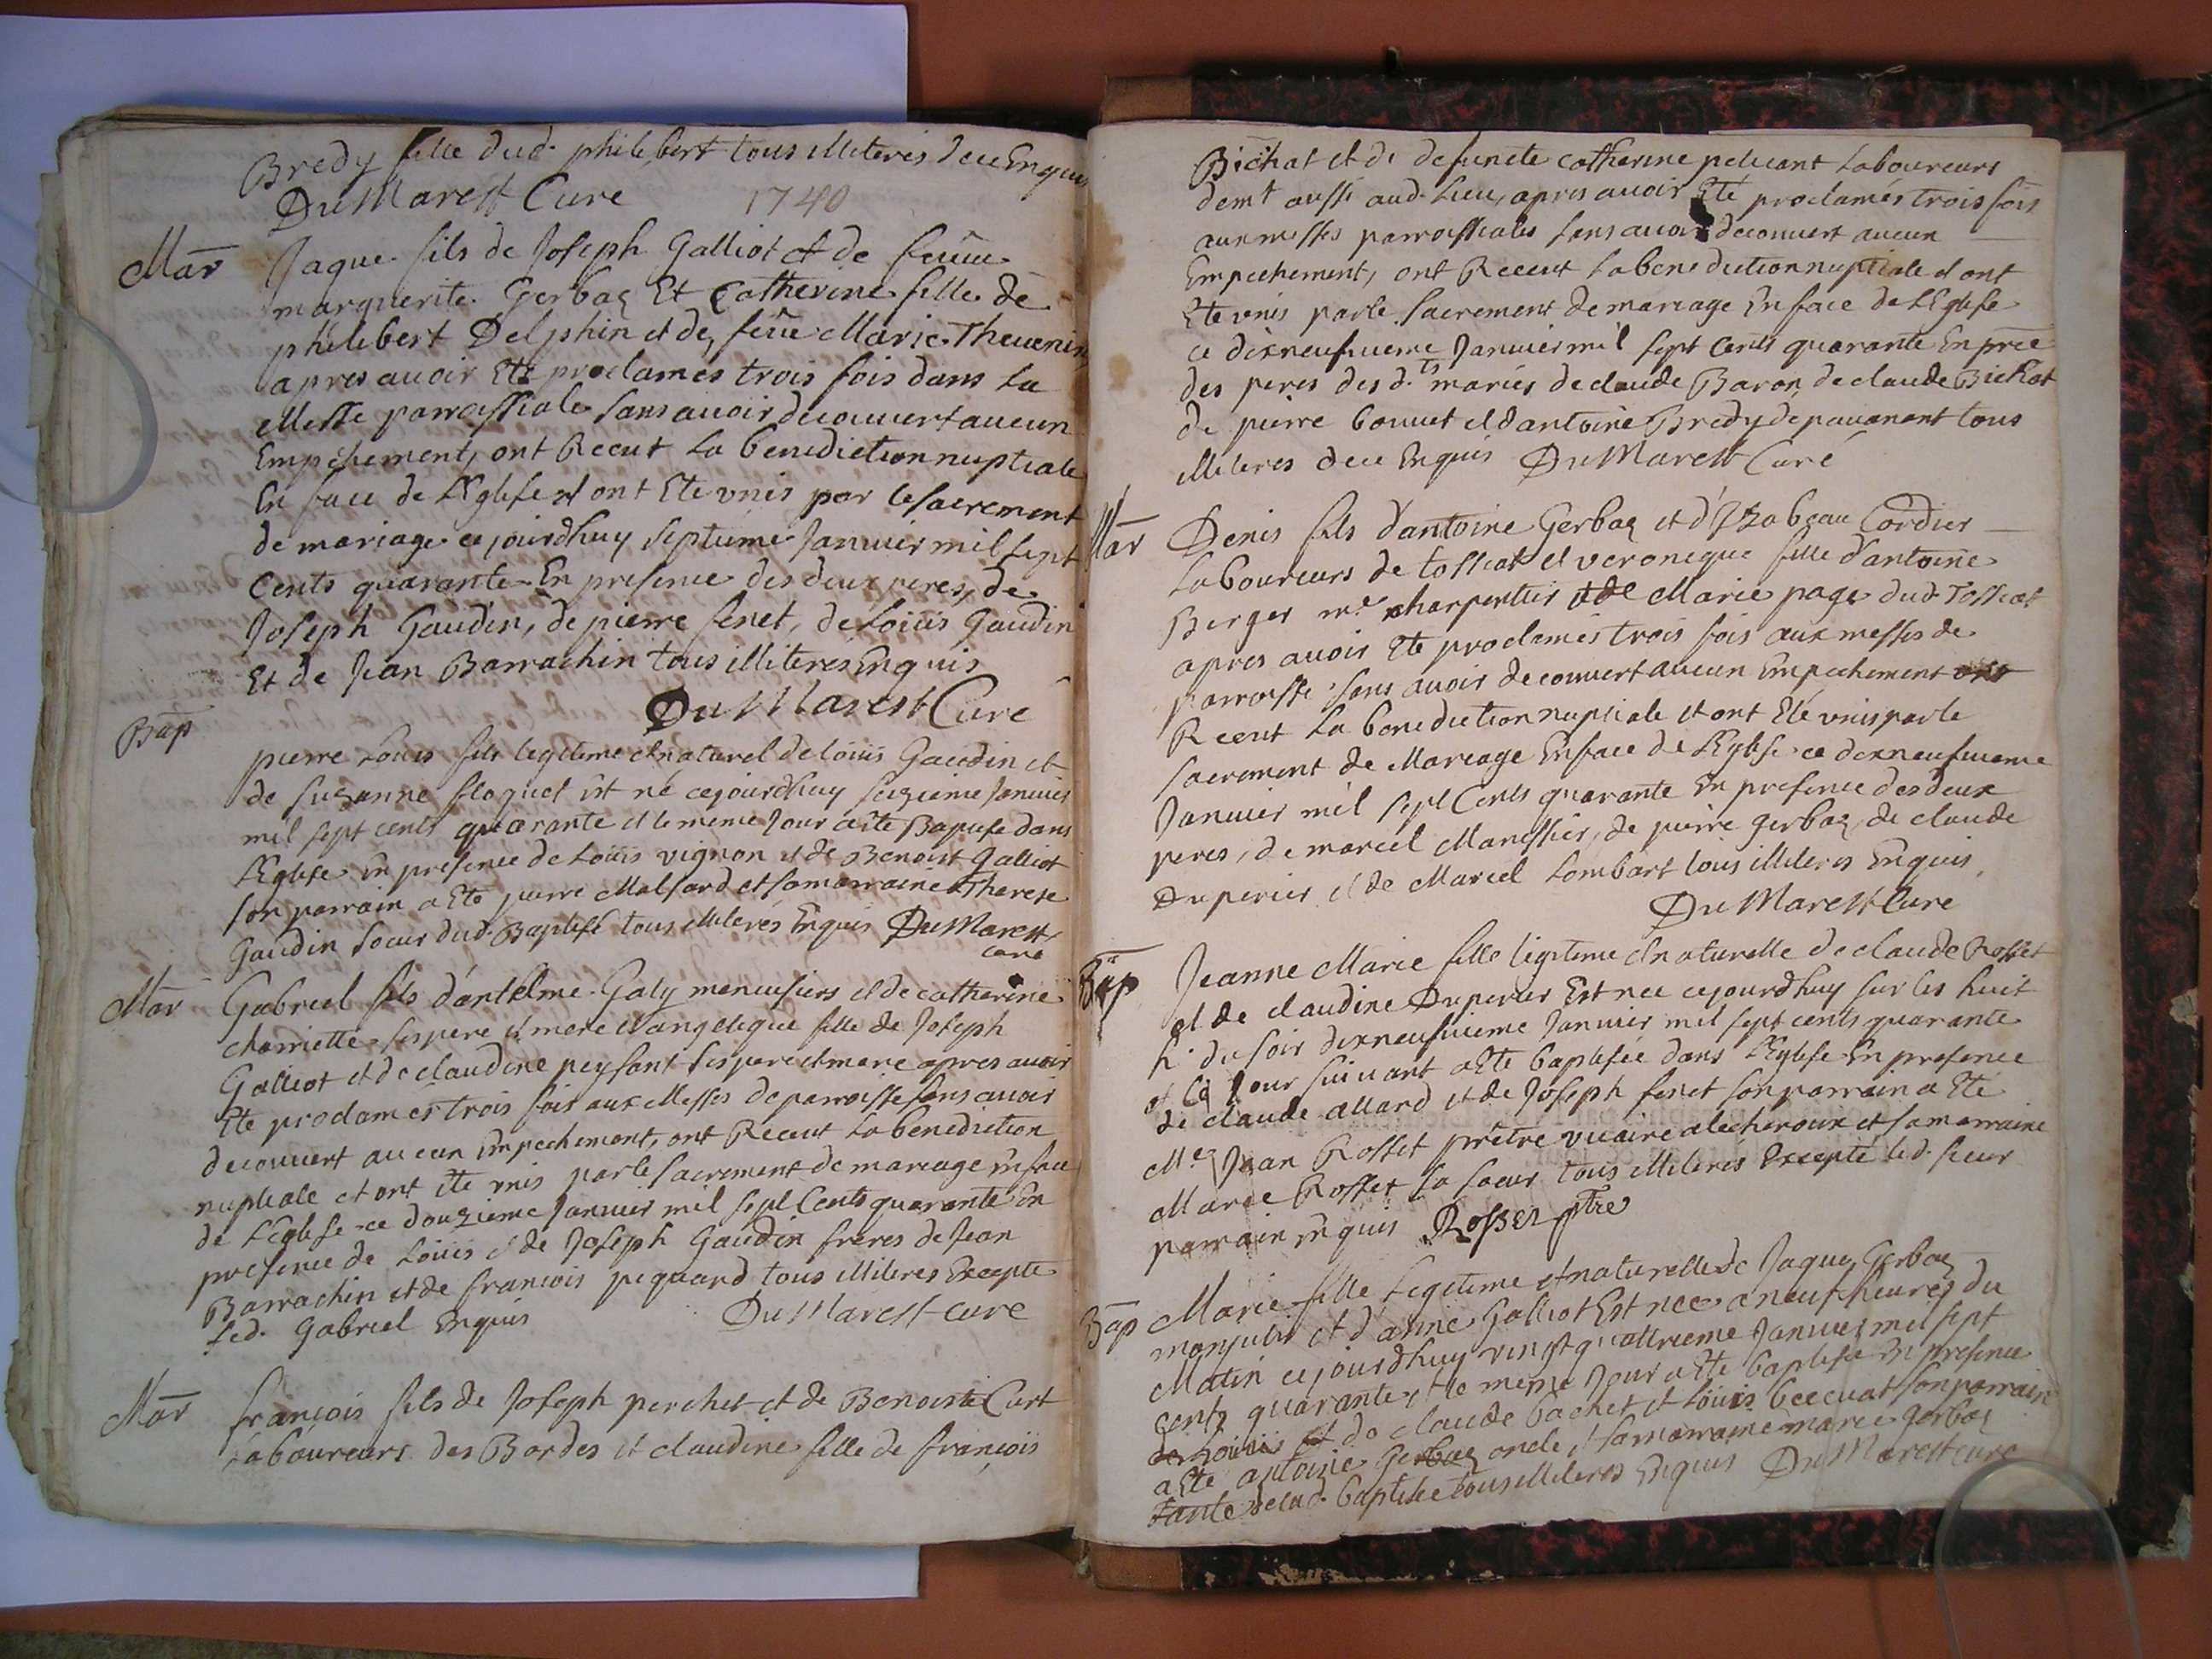 Bredy fille dud. philibert tous illiteres de ce Enquis
DuMarest Cure
1740
Mar
Jaque fils de Joseph Galliot et de feüe
marguerite Gerbaz Et Catherine fille de
philibert Delphin et de feüe Marie Theuenin
apres auoir Eté proclames trois fois dans La
Messe parroissiale sans auoir decouuert aucun
Empéhement, ont Receut La benediction nuptiale
En face de L'Eglise et ont Ete vnis par le sacrement
de mariage cejourdhuy septieme Januier mil sept
Cents quarante En presence des deux peres, de
Joseph Gaudin, de pierre fenet, de Loüis Gaudin
Et de Jean Barrachin tous illiterés Enquis
DuMarest Cure
Bap
pierre Louis fils legitime et naturel de loüis Gaudin et
de suzanne floquet est né cejourdhuy seizieme Januier
mil sept cents quarante et le meme Jour a ete Baptisé dans
L'Eglise En presence de Loüis vignon et de Benoist Galliot
son parrain a Eté pierre Malfard et sa marraine Therese
Gaudin soeur dud. Baptisé tous illiterés Enquis DuMarest
cure
Mar
Gabriel fils d'antelme Galy menuisiers et de catherine
charriette ses pere et mere et angelique fille de Joseph
Galliot et de claudine peysant ses pere et mere apres auoir
Ete proclamés trois fois aux Messes de parroisse sans auoir
decouuert aucun Empechement, ont Receut La benediction
nuptiale et ont ete vnis par le sacrement de mariage En face
de L'Eglise ce douzieme Januier mil sept Cents quarante En
presence de Loüis et de Joseph Gaudin freres de Jean
Barrachin et de francois pequard tous illiteres Excepté
led. Gabriel Enquis DuMarest cure
Mar
francois fils de Joseph perchet et de Benoiste Curt
Laboureurs des Bordes et claudine fille de francois
Bichat et de defuncte catherine peluant Laboureurs
demt aussi aud. Lieu, apres auoir Eté proclamés trois fois
aux messes parroissiales sans auoir decouuert aucun
Empechement, ont Receut La benediction nuptiale et ont
Ete vnis par le sacrement de mariage En face de L'Eglise
ce dixneufuieme Januier mil sept Cents quarante En prce
des peres des d.ts mariés de claude Baron, de claude Bichat
de pierre bouuet et d'antoine Bredy de pauanent tous
illiteres de ce Enquis DuMarest Curé
Mar
Denis fils d'antoine Gerbaz et d'Yzabeau Cordier
Laboureurs de tossiat et veronique fille d'antoine
Berger me charpentier et de Marie page dud Tossiat
apres auoir Ete proclamés trois fois aux messes de
parroisse sans auoir decouuert aucun Empechement ont
Receut La benediction nuptiale et ont Eté vnis par le
sacrement de Mariage En face de L'Eglise ce dixneufuieme
Januier mil sept Cents quarante En presence des deux
peres, de marcel Manessier, de pierre gerbaz, de claude
Duperier et de Marcel Lombart tous illiteres Enquis
DuMarest Cure
Bap
Jeanne Marie fille legitime et naturelle de claude Rosset
et de claudine Duperier Est née cejourdhuy sur les huit
h. du soir dixneufuieme Januier mil sept cents quarante
et Le Jour suiuant a Ete baptisée dans L'Eglise En presence
de claude allard et de Joseph fenet son parrain a Eté
Me Jean Rosset prêtre vicaire alecheroux et sa marraine
Marie Rosset sa soeur tous illiterés Excepté led. sieur
parrain Enquis Rosset ptre
Bap
Marie fille Legitime et naturelle de Jaque Gerbaz
et d'anne Galliot Est nee a neuf heures du
Matin cejourdhuy vingt quattrieme Januier mil sept
Cents quarante et le meme Jour a Eté baptisée En presence
de Loüis et de claude bachet et Loüis son parrain
a Eté antoine Gerbaz oncle et sa marraine marie Gerbaz
tante de lad. baptisée tous illiteres Enquis DuMarest cure